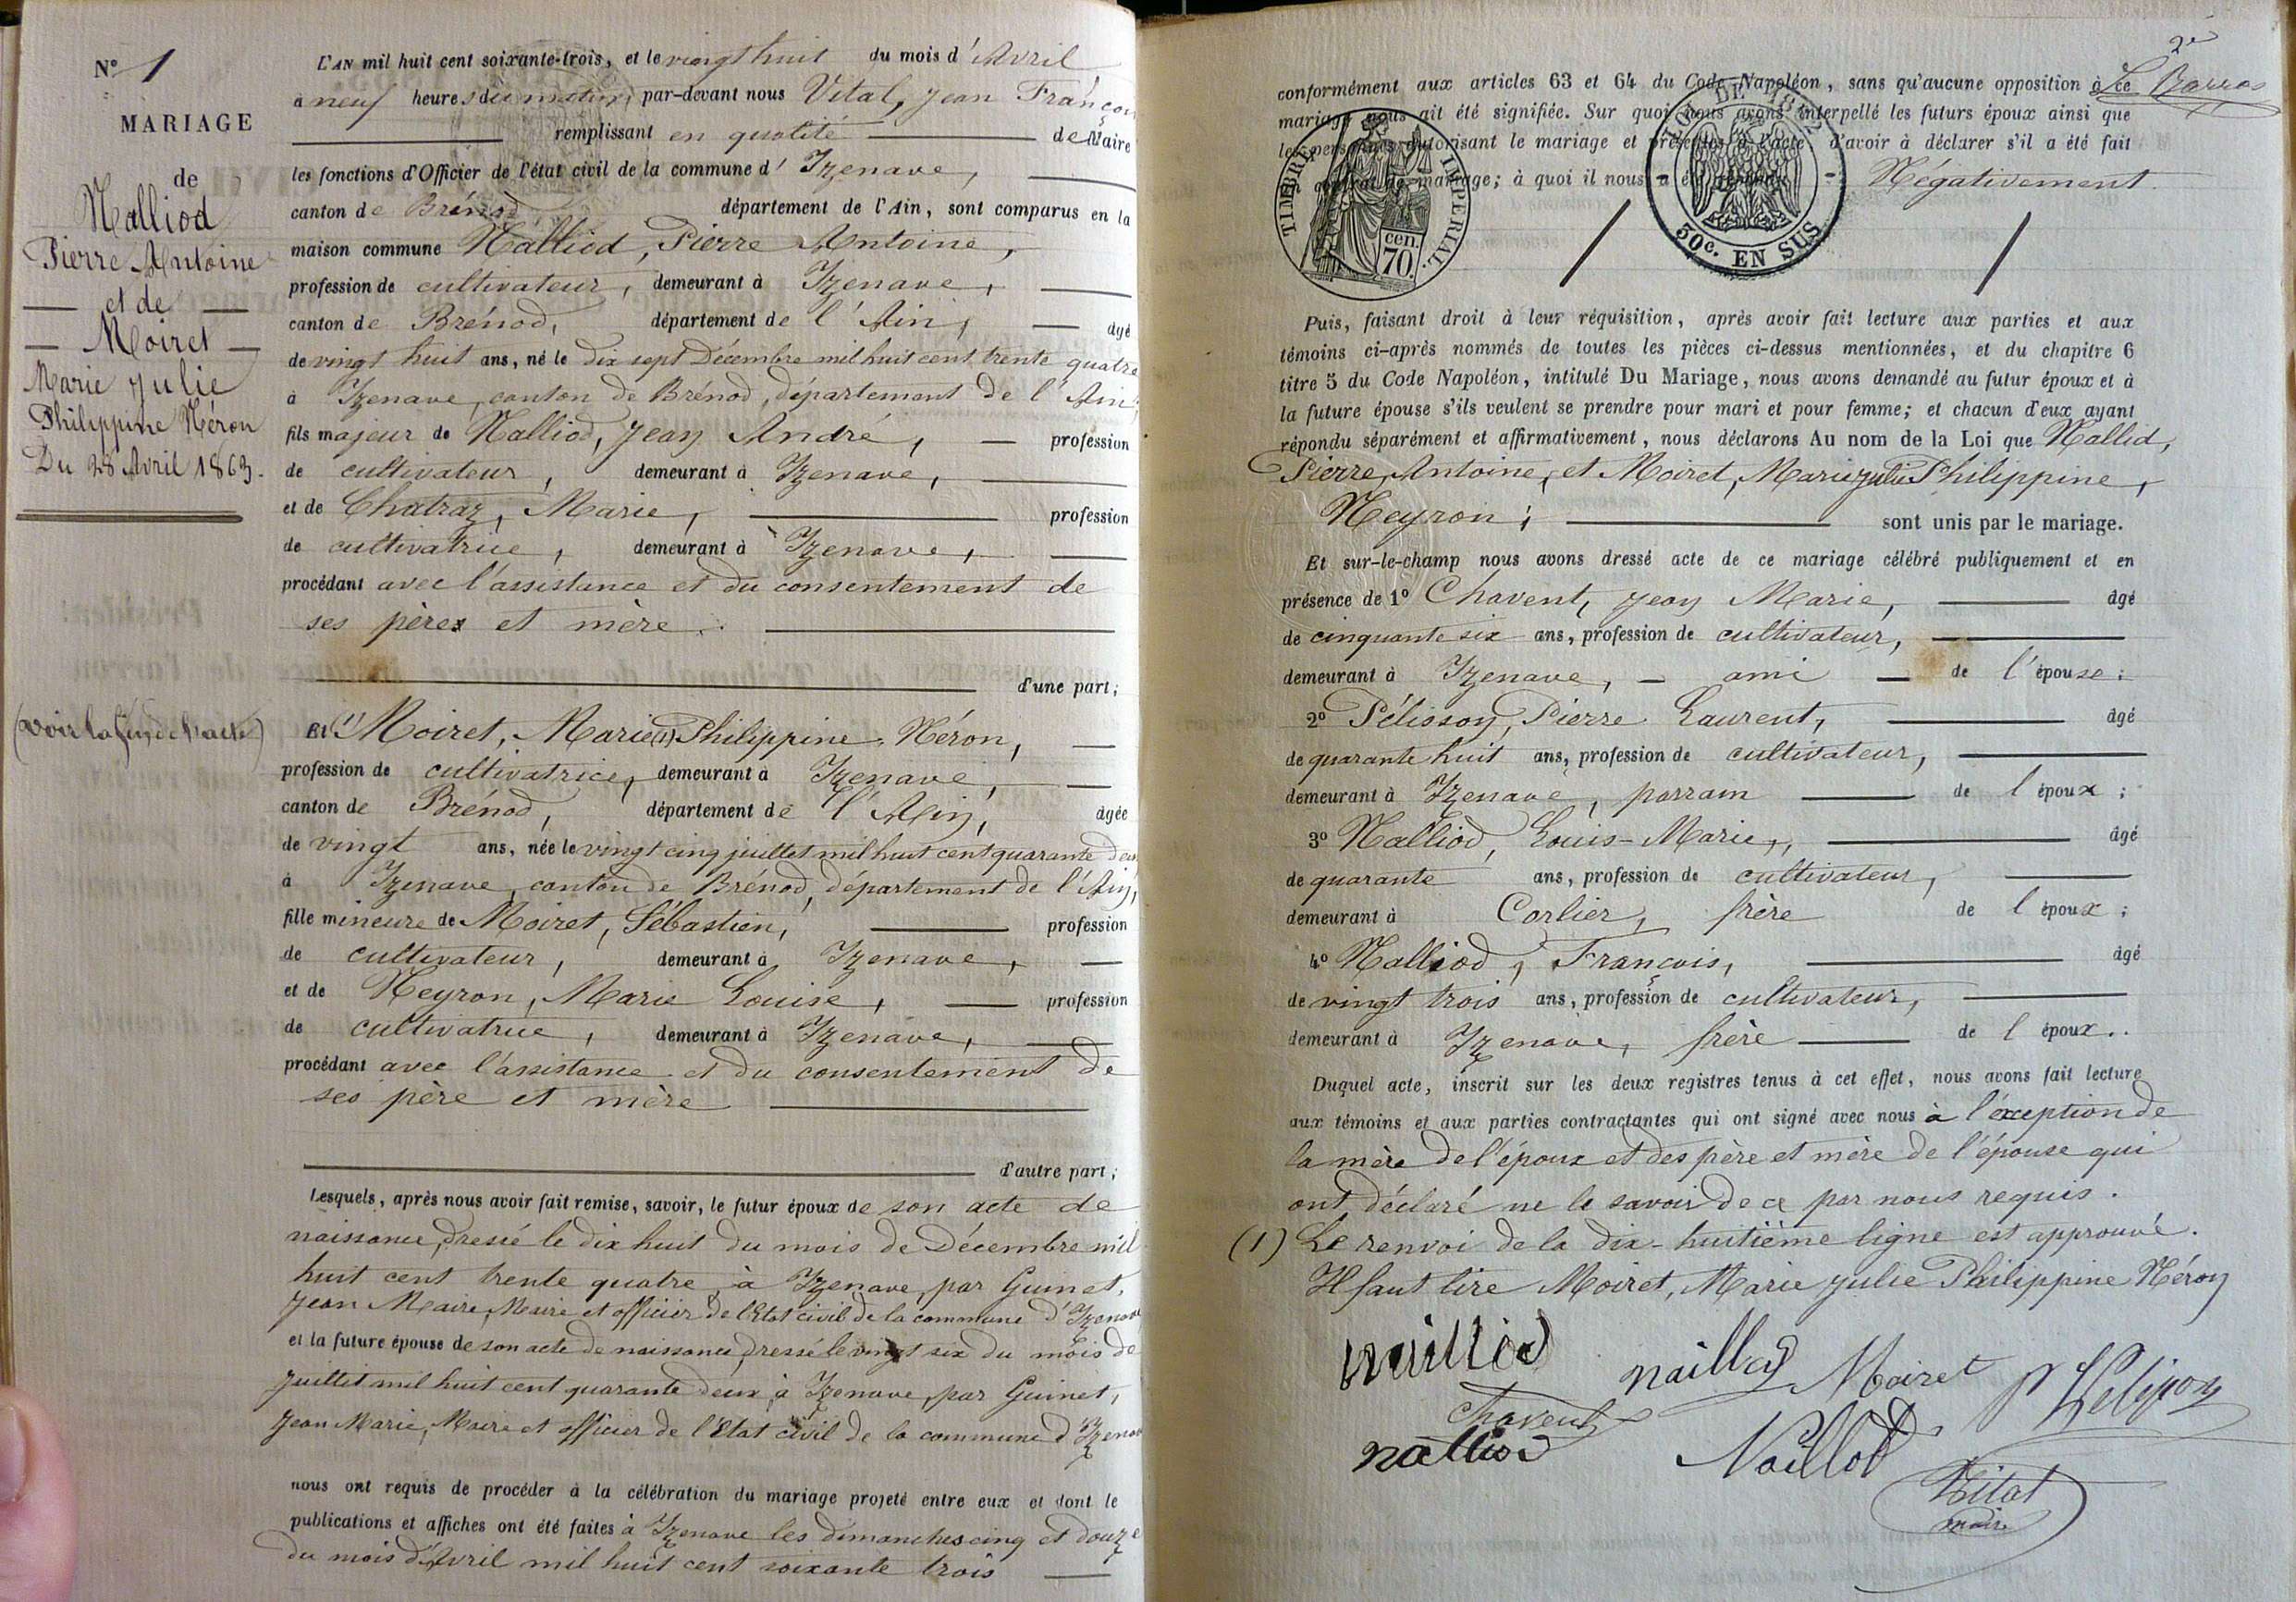 N° 1
MARIAGE
de
Nalliod
Pierre Antoine
et de
Moiret
Marie Julie
Philippine Néron
Du 28 Avril 1863.
(voir la fin de l'acte)
L'AN mil huit cent soixante-trois, et le vingt huit du mois d'Avril
à neuf heures du matin, par-devant nous Vital, Jean François
remplissant en qualité de Maire
les fonctions d'Officier de l'état civil de la commune d'Izenave,
canton de Brénod département de l'Ain, sont comparus en la
maison commune Nalliod, Pierre Antoine,
profession de cultivateur, demeurant à Izenave,
canton de Brénod, département de l'Ain, âgé
de vingt huit ans, né le dix sept Décembre mil huit cent trente quatre
à Izenave, canton de Brénod, département de l'Ain,
fils majeur de Nalliod, Jean André, profession
de cultivateur, demeurant à Izenave,
et de Chatraz, Marie, profession
de cultivatrice, demeurant à Izenave,
procédant avec l'assistance et du consentement de
ses pères et mère.
d'une part;
Et (1) Moiret, Marie (1) Philippine Néron,
profession de cultivatrice, demeurant à Izenave,
canton de Brénod, département de l'Ain, âgée
de vingt ans, née le vingt cinq juillet mil huit cent quarante deux
à Izenave, canton de Brénod, département de l'Ain,
fille mineure de Moiret, Sébastien, profession
de cultivateur, demeurant à Izenave,
et de Neyron, Marie Louise, profession
de cultivatrice, demeurant à Izenave,
procédant avec l'assistance et du consentement de
ses père et mère
d'autre part;
Lesquels, après nous avoir fait remise, savoir, le futur époux de son acte de
naissance, dressé le dix huit du mois de Décembre mil
huit cent trente quatre, à Izenave, par Guinet,
Jean Marie, Maire et officier de l'Etat civil de la commune d'Izenave
et la future épouse de son acte de naissance, dressé le vingt six du mois de
Juillet mil huit cent quarante deux, à Izenave, par Guinet,
Jean Marie, Maire et officier de l'Etat civil de la commune d'Izenave
nous ont requis de procéder à la célébration du mariage projeté entre eux et dont le
publications et affiches ont été faites à Izenave les dimanches cinq et douze
du mois d'Avril mil huit cent soixante trois
2e
conformément aux articles 63 et 64 du Code Napoléon, sans qu'aucune opposition à ce
mariage nous ait été signifiée. Sur quoi nous avons interpellé les futurs époux ainsi que
les personnes autorisant le mariage et présentes à l'acte, d'avoir à déclarer s'il a été fait
contrat de mariage; à quoi il nous a été répondu Négativement.
TIMBRE IMPERIAL.
cen.
70.
50c. EN SUS
Puis, faisant droit à leur réquisition, après avoir fait lecture aux parties et aux
témoins ci-après nommés de toutes les pièces ci-dessus mentionnées, et du chapitre 6
titre 5 du Code Napoléon, intitulé Du Mariage, nous avons demandé au futur époux et à
la future épouse s'ils veulent se prendre pour mari et pour femme; et chacun d'eux ayant
répondu séparément et affirmativement, nous déclarons Au nom de la Loi que Nallid,
Pierre, Antoine, et Moiret, Marie Julie Philippine,
Neyron; sont unis par le mariage.
Et sur-le-champ nous avons dressé acte de ce mariage célébré publiquement et en
présence de 1° Chavent, Jean Marie, âgé
de cinquante six ans, profession de cultivateur,
demeurant à Izenave, ami de l'épouse;
2° Pélisson, Pierre Laurent, âgé
de quarante huit ans, profession de cultivateur,
demeurant à Izenave, parrain de l'époux;
3° Nalliod, Louis-Marie, âgé
de quarante ans, profession de cultivateur,
demeurant à Corlier, frère de l'époux;
4° Nalliod, François, âgé
de vingt trois ans, profession de cultivateur,
demeurant à Izenave, frère de l'époux..
Duquel acte, inscrit sur les deux registres tenus à cet effet, nous avons fait lecture
aux témoins et aux parties contractantes qui ont signé avec nous à l'exception de
la mère de l'époux et des père et mère de l'épouse qui
ont déclaré ne le savoir de ce par nous requis.
(1) Le renvoi de la dix-huitième ligne est approuvé.
Il faut lire Moiret, Marie Julie Philippine Néron
naillod Moiret P Pelisson
Chavent
nalliod Naillod
Vital
maire